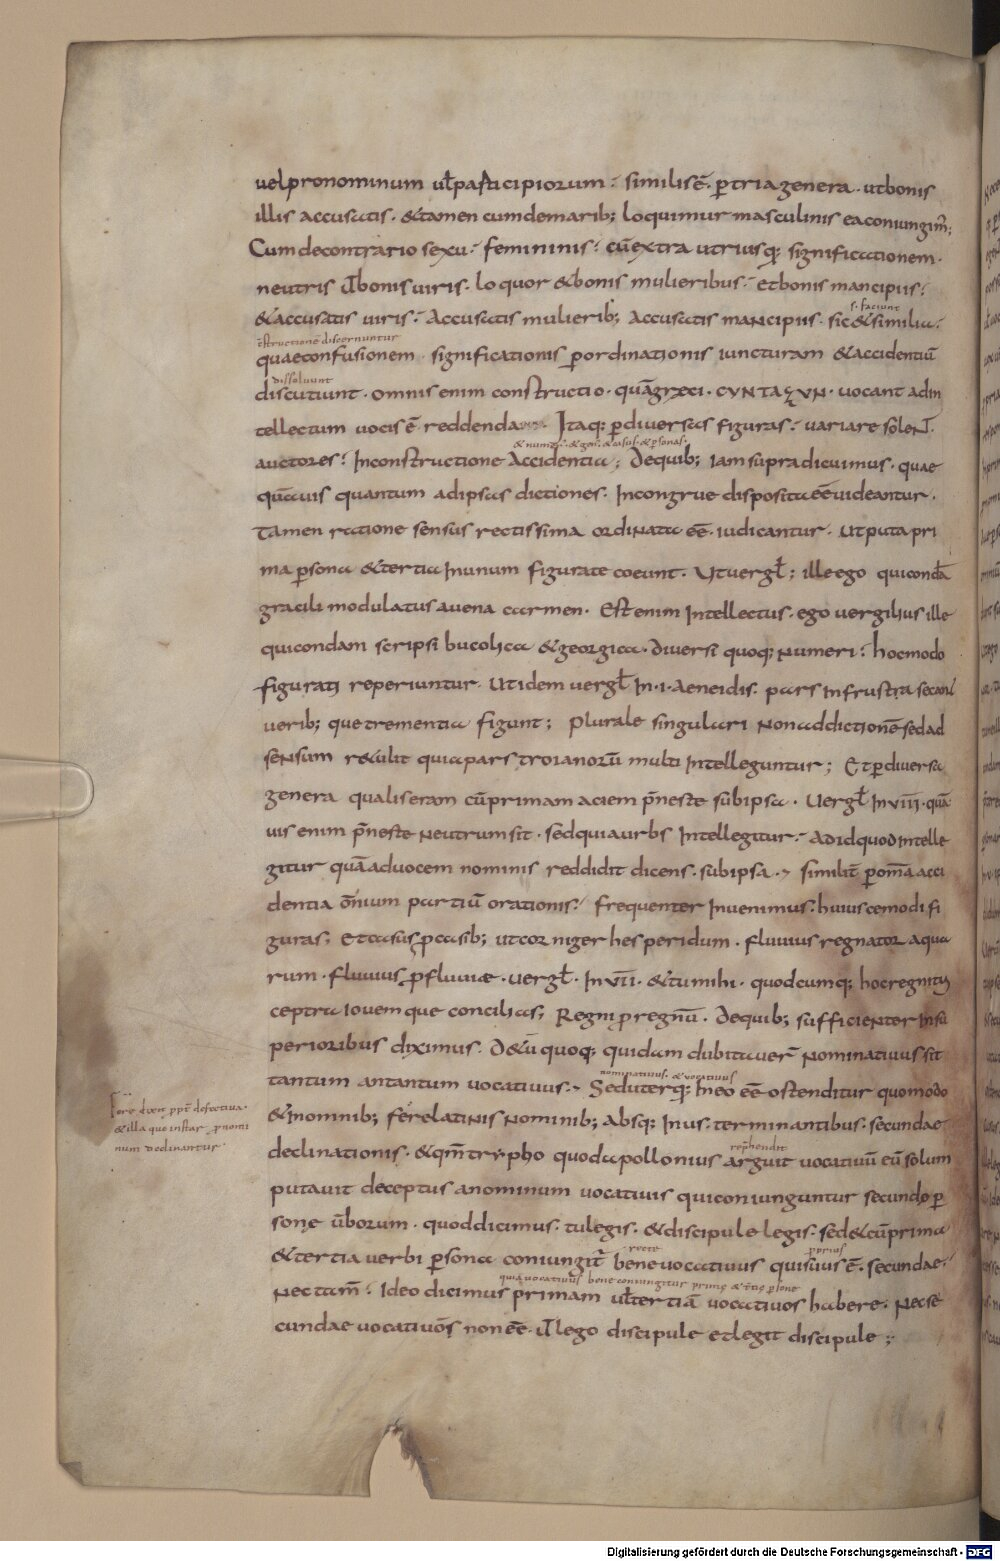 uel pronominum ul̄ participiorum. similis ē. p̄ tria genera. ut bonis
illis accusatis. & tamen cum de marib; loquimur masculinis ea coniungim̄;
Cum de contrario sexu. femininis. cū extra utriusq; significationem.
neutris ut bonis uiris. loquor & bonis mulieribus. et bonis mancipiis.
s. faciunt
& accusatis uiris. Accusatis mulierib; Accusatis mancipiis. sic & similia.
cōstructionē discernuntur
quae confusionem. significationis p̄ ordinationis iuncturam & accidentiū
dissoluunt
discutiunt. omnis enim constructio. quā greci. CYNTAξYN. uocant ad in
tellectum uocis ē reddenda Itaq; p̄ diuersas figuras. uariare solent.
& numeri. & gen̄. & casus. & p̄sonas.
auctores. In constructione Accidentia; De quib; iam supra dicuimus. quae
quāuis quantum ad ipsas dictiones. Incongrue disposita eē uideantur.
Tamen ratione sensus rectissima ordinata eē. iudicantur. Ut puta pri
ma p̄sona & tertia In unum figurate coeunt. Ut uergl̄; ille ego qui condā
gracili modulatus auena carmen. Est enim Intellectus. ego uergilius ille
qui condam scripsi bucolica & georgica. Diuersi quoq; Numeri. hoc modo
figurati reperiuntur. Ut idem uergl̄ In .I. Aeneidis. pars In frustra secant
uerib; que trementia figunt; Plurale singulari Non ad dictionē sed ad
seNsum r&ulit quia pars troianorū multi Intelleguntur; Et p̄ diuersa
genera qualis eram cū primam aciem p̄neste sub ipsa. Uergl̄ In VIII. quā
uis enim p̄neste Neutrum sit. sed quia urbs Intellegitur. Ad id quod Intelle
gitur quā ad uocem nominis reddidit dicens. sub ipsa. similit̄ p̄ om̄a acci
dentia om̄ium partiū orationis. frequenter Inuenimus. huiuscemodi fi
guras; Et casus p̄ casib; ut cor niger hesperidum. fluuius regnator aqua
rum. fluuius p̄ fluuiae. uergl̄. In VII. & tu mihi. quodcumq; hoc regni tu s
ceptra Iouem que concilias; Regni p̄ regnū. De quib; sufficienter In su
perioribus diximus. D&ū quoq; quidam dubitauer̄ Nominatiuus sit
nominatiuus. & uocatiuus
tantum an tantum uocatiuus. Sed uterq; In eo eē ostenditur quomodo
& In nominib; fere relatiuis Nominib; Absq; In us. terminantibus. secundae
declinationis. & qm̄ trypho quod apollonius
rep̄hendit
arguit uocatiuū eū solum
putauit deceptus a nominum uocatiuis qui coniunguntur secunde p̄
sone ūborum. quod dicimus. tu legis. & discipule legis. sed & cū prima
recte p̄prius
& tertia uerbi p̄sona coniungit̄ bene uocatiuus qui suus ē. secundae.
quia uocatiuus bene coniungitur prime & t̄tie p̄sone
Nec tam̄. Ideo dicimus primam ul̄ tertiā uocatiuos habere. Nec se
cundae uocatiuōs non eē. ut lego discipule et legit discipule;
Fere dixit ppt̄ defectiua.
& illa que instar p̄nomi
num declinantur.
Digitalisierung gefördert durch die Deutsche Forschungsgemeinschaft - DFG